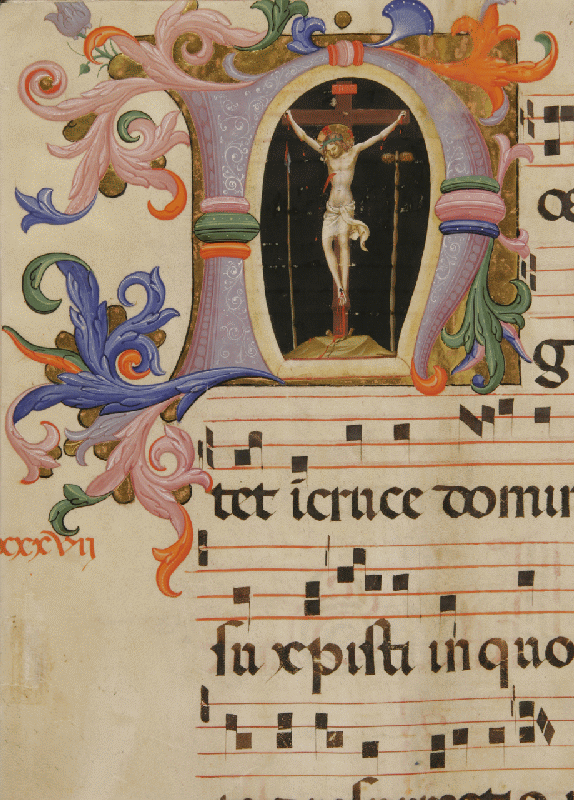 N
g
tet icruce domin
xxxvii
su xpisti in quo